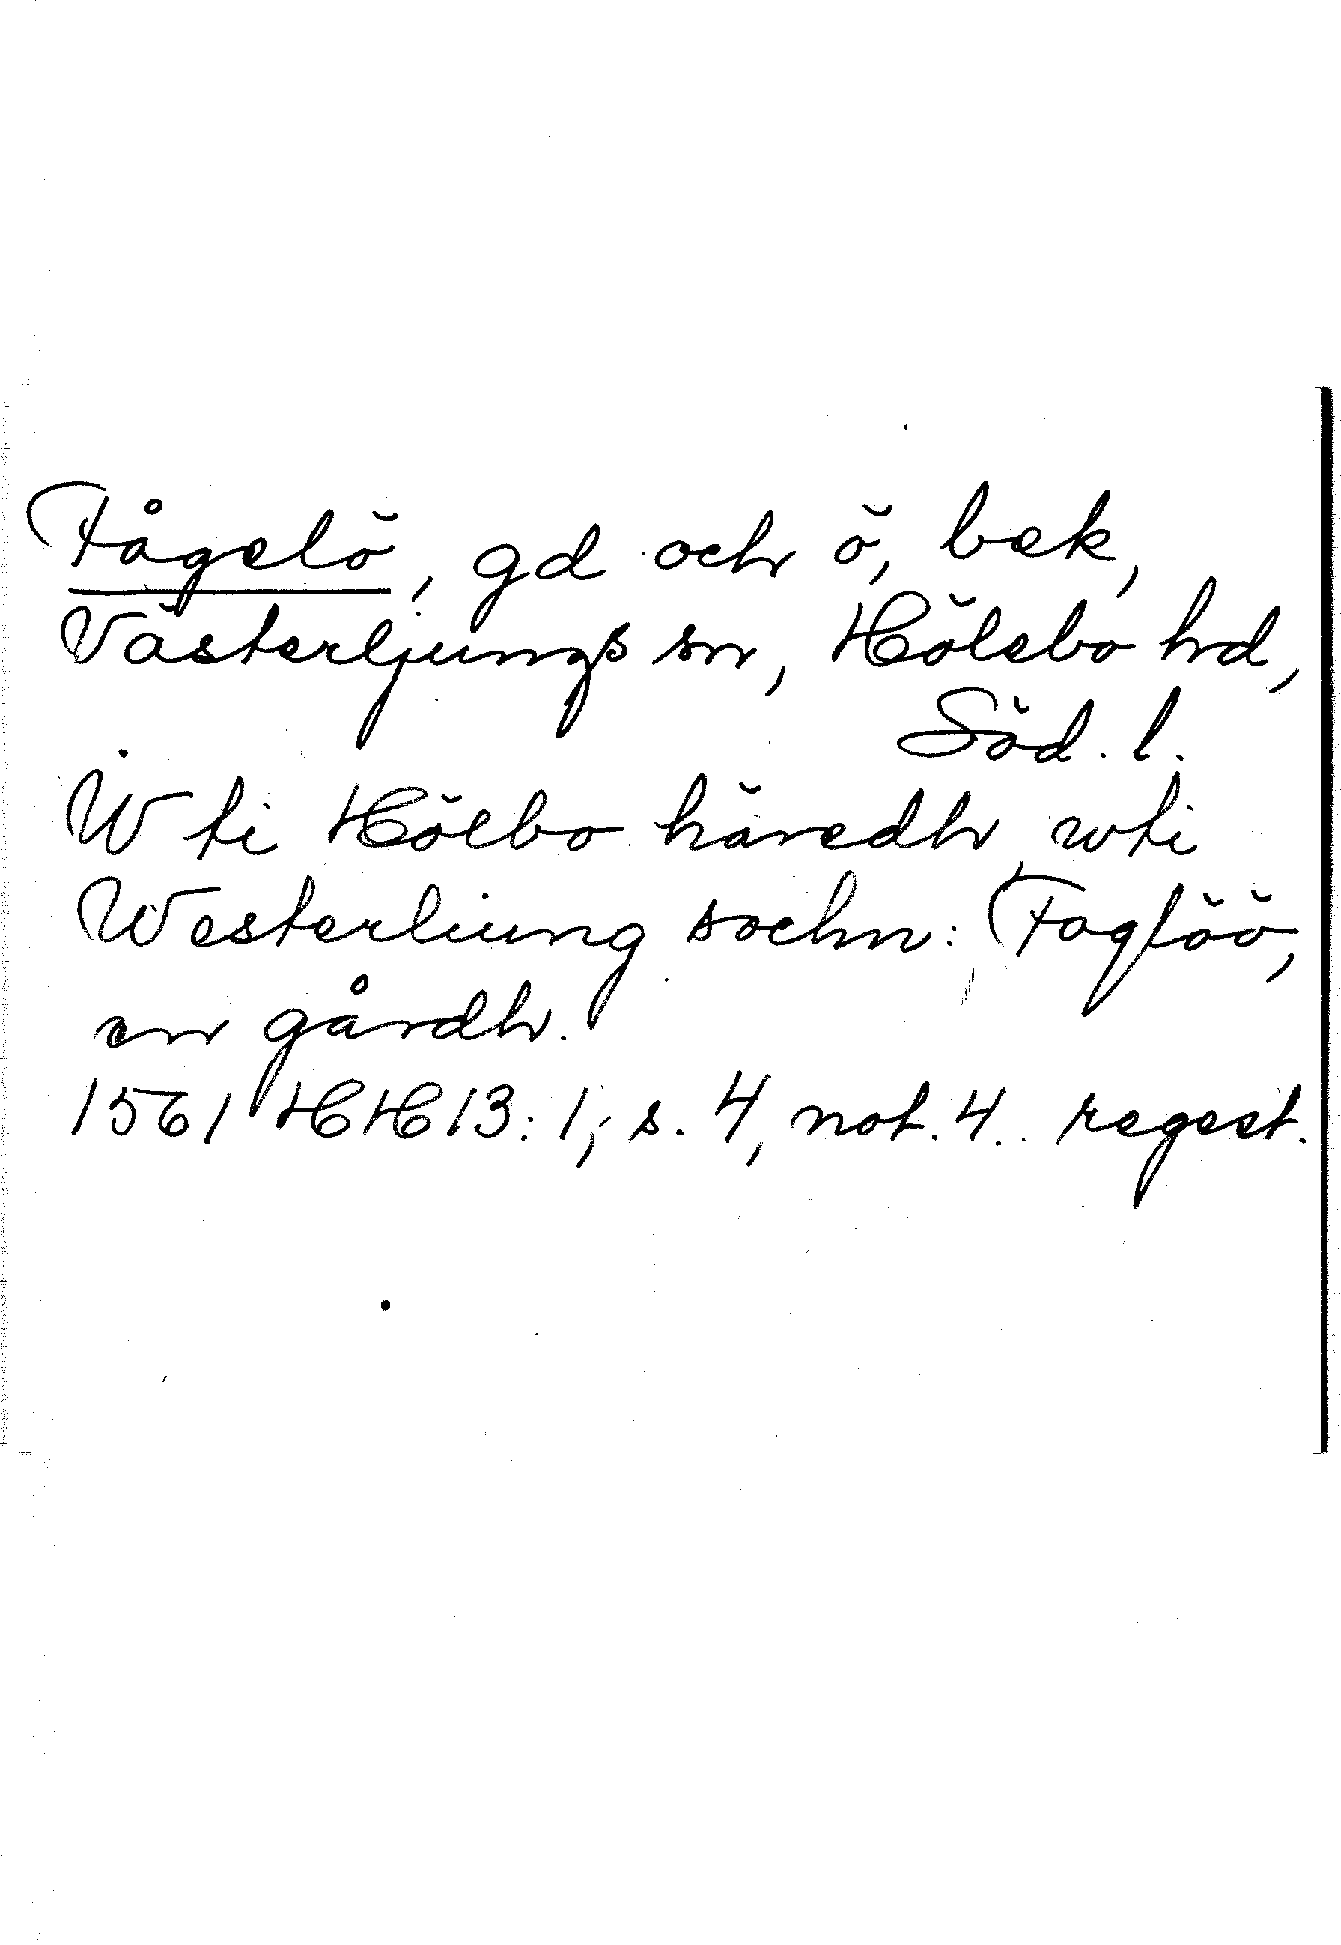 Fågelö, gd och ö, bek,
Västerljungs sn, Hölebo hd,
Söd. l.
W ti Hölbo häredh wti
Westerliung sochn: Foglöö,
en gårdh.
1561 HH 13:1, s. 4, not. 4. regest.